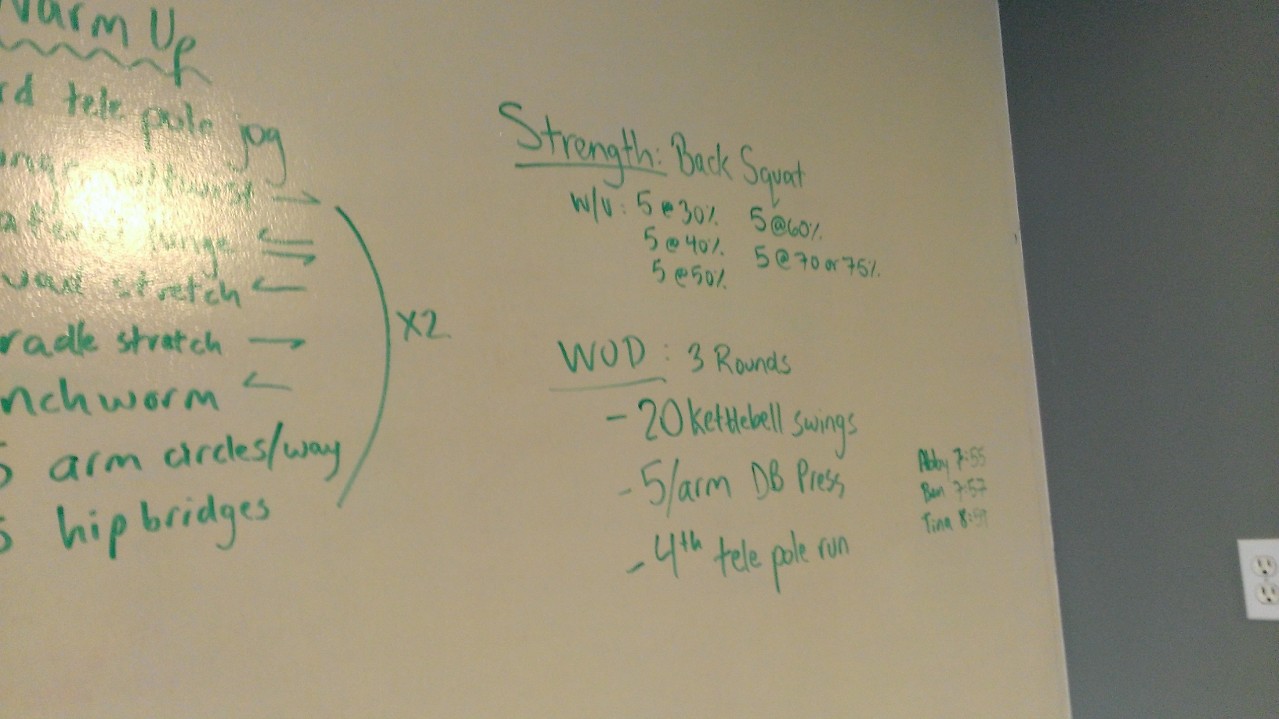 Warm Up
rd tele pole jog
lunge w/ twist →
lateral lunge ⇄
quad stretch ←
radle stretch →
nchworm ←
5 arm circles/way
5 hip bridges
X2
Strength: Back Squat
W/U: 5 @ 30% 5 @ 60%
5 @ 40% 5 @ 70 or 75%
5 @ 50%
WOD: 3 Rounds
- 20 Kettlebell swings
- 5/arm DB Press
- 4th tele pole run
Abby 7:55
Ben 7:57
Tina 8:59